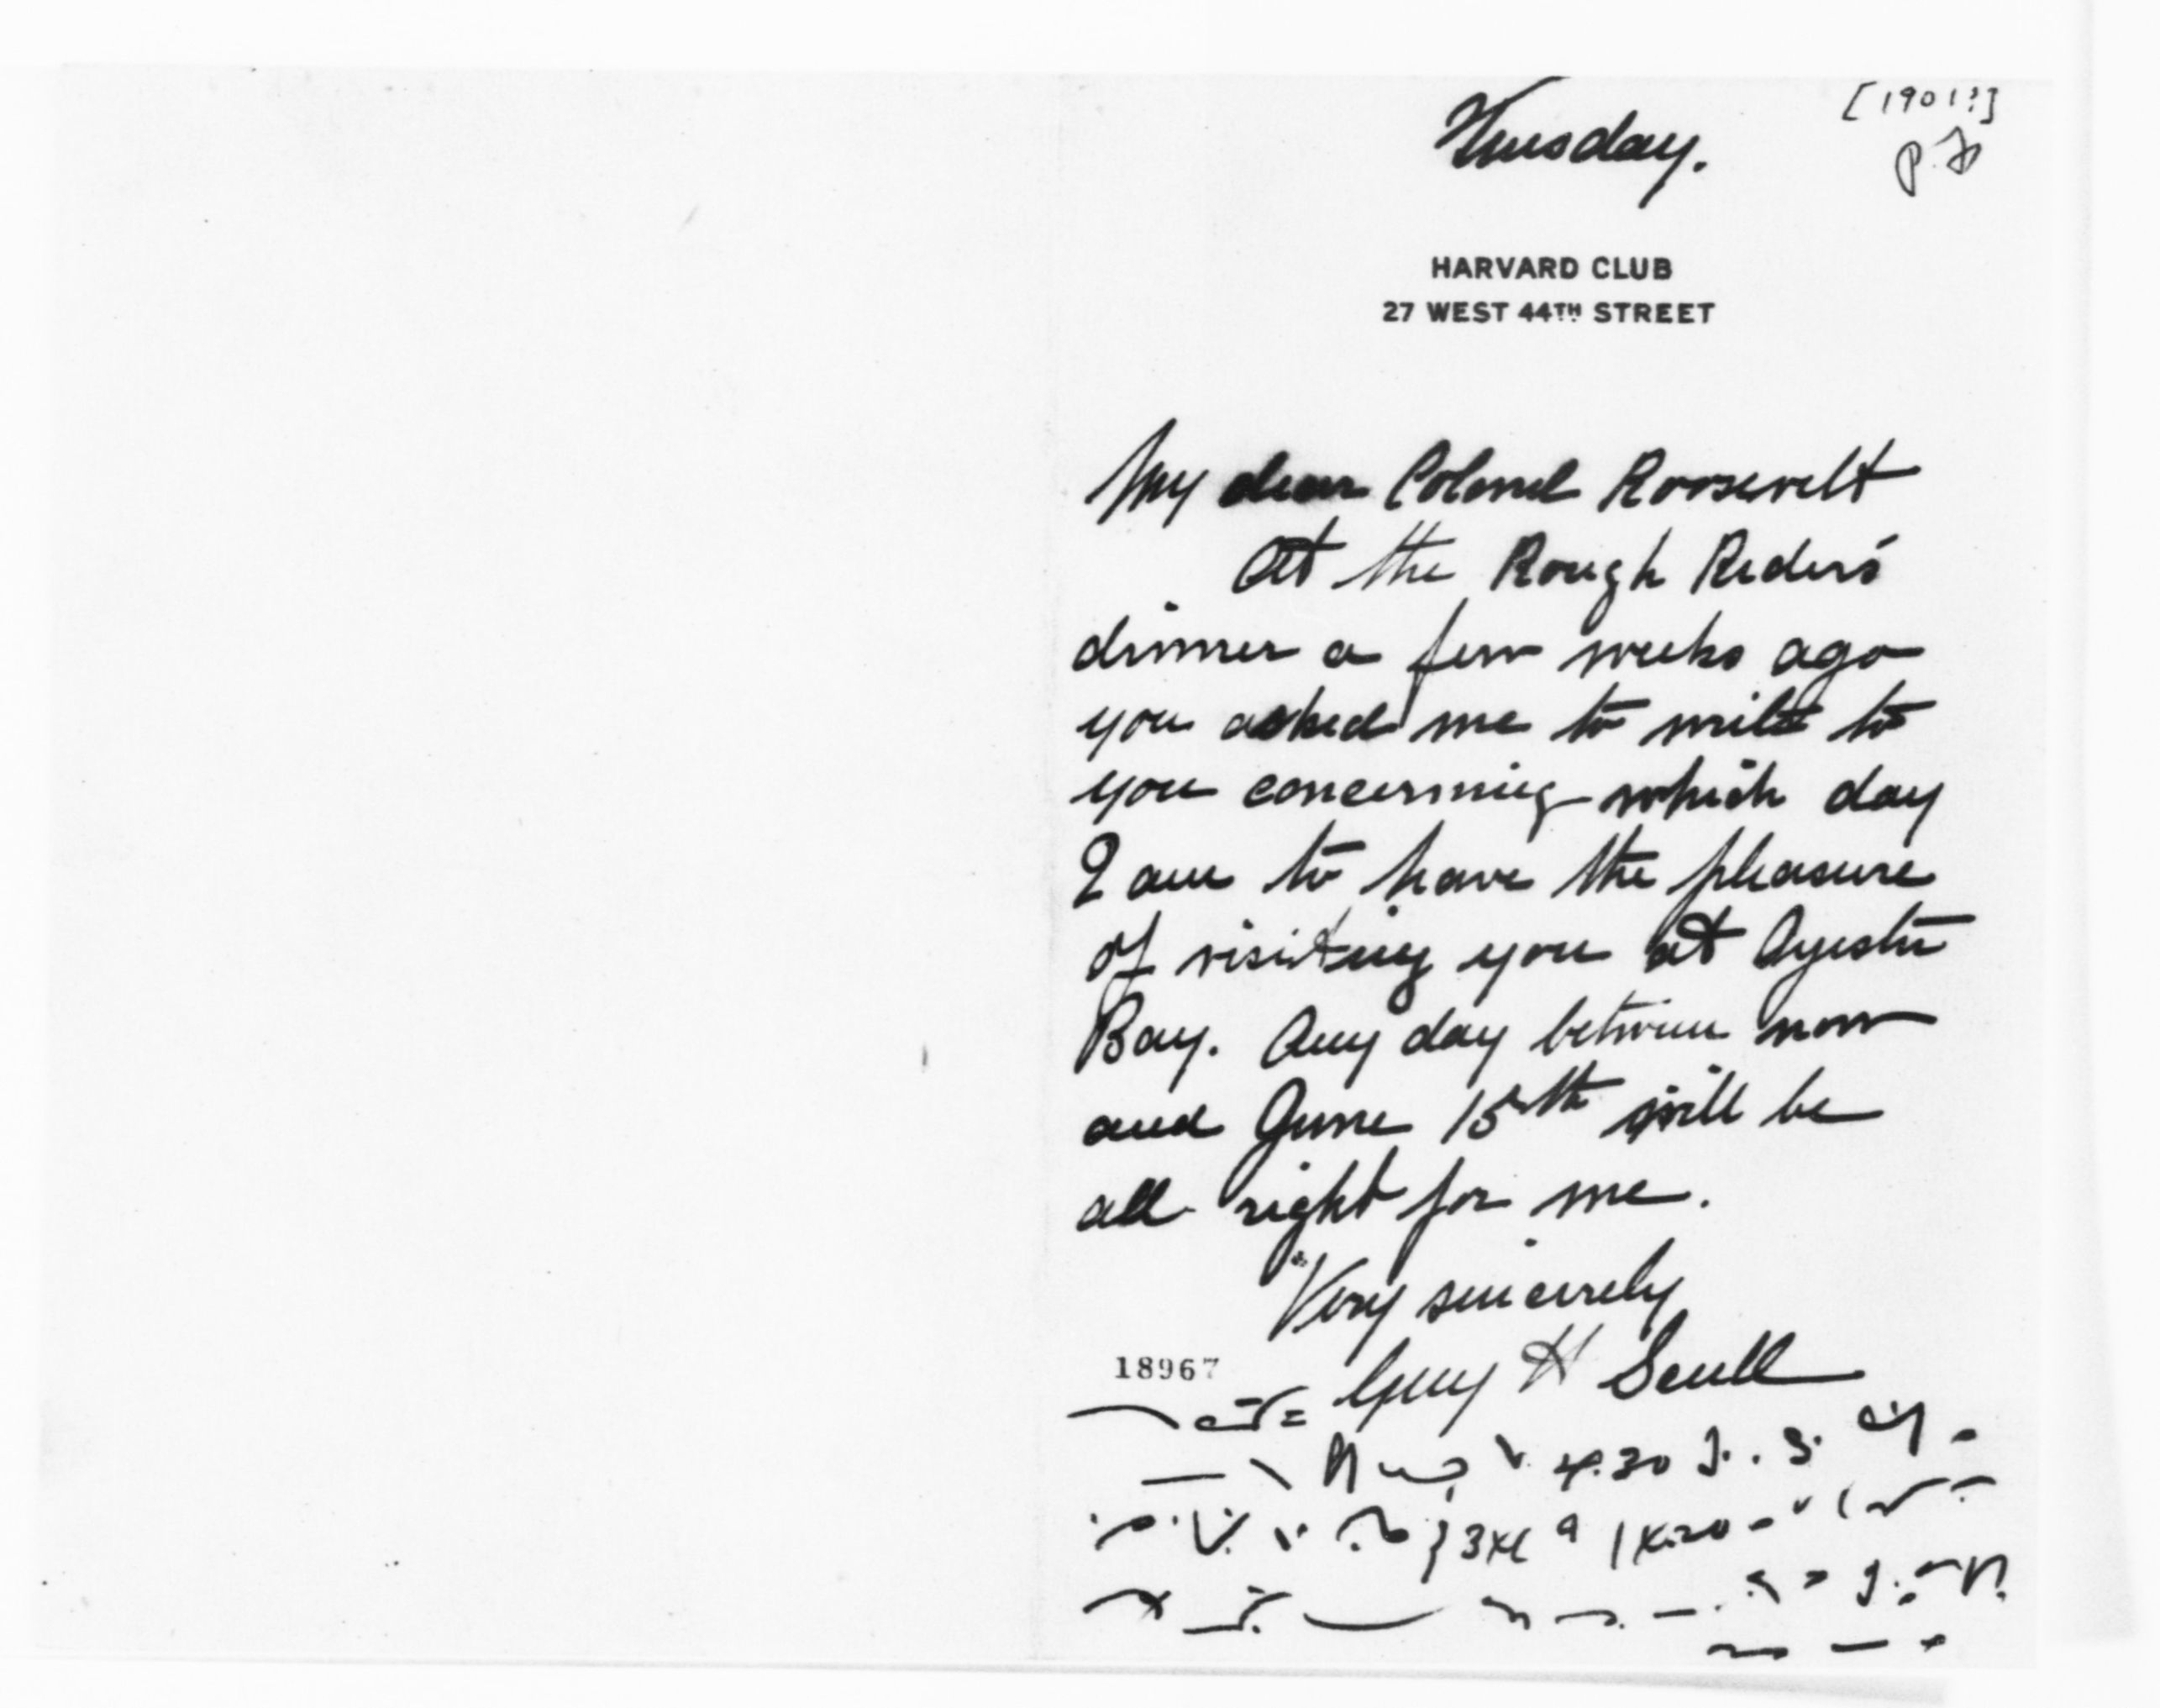 Tuesday.
[1901?]
P.F
HARVARD CLUB
27 WEST 44TH STREET
My dear Colonel Roosevelt
At the Rough Riders'
dinner a few weeks ago
you asked me to write to
you concerning which day
I am to have the pleasure
of visiting you at Oyster
Bay. Any day between now
and June 15th will be
all right for me.
Very sincerely
Guy H Scull
18967
4.30